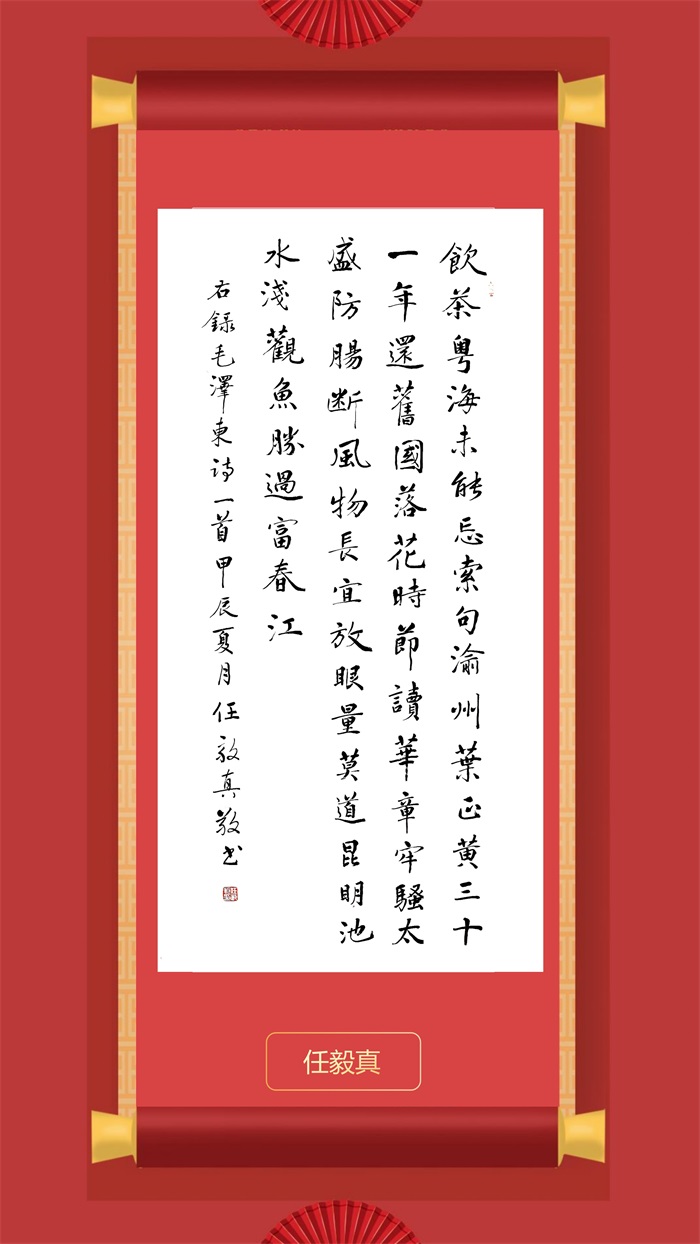 飲茶粵海未能忘索句渝州葉正黃三十
一年還舊國落花時節讀華章牢騷太
盛防腸斷風物長宜放眼量莫道昆明池
水淺觀魚勝過富春江
右錄毛澤東詩一首甲辰夏月任毅真敬书
任毅真